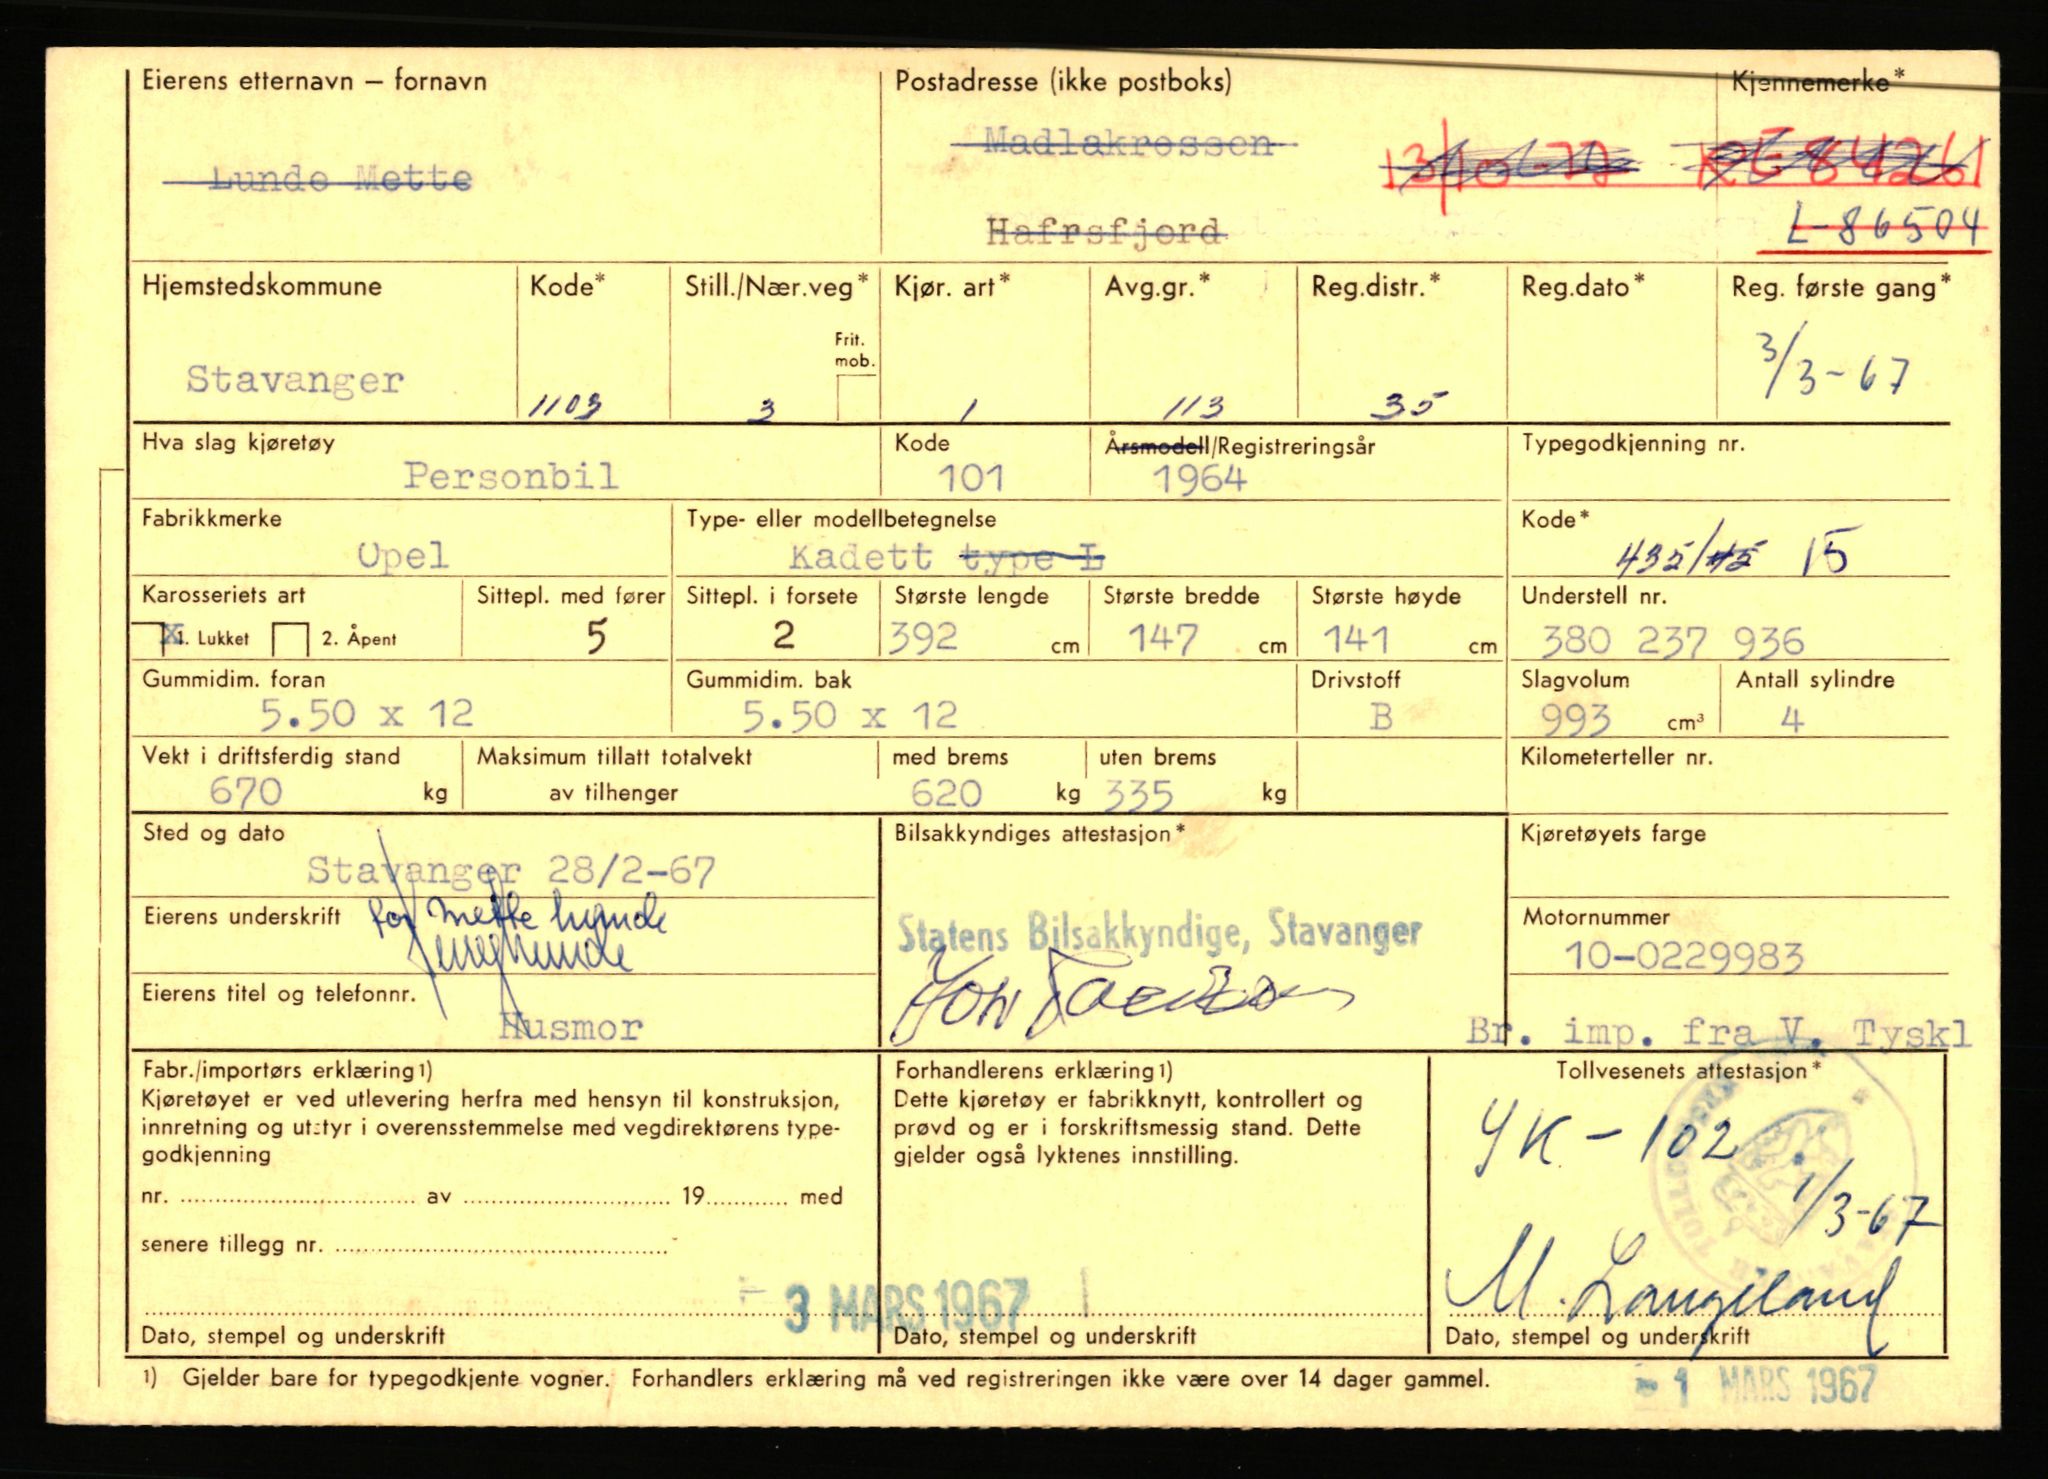 Eierens etternavn — fornavn
Postadresse (ikke postboks)
Kjennemerke*
Lunde Mette
Madlakrossen
13/10-72 RE 84261
Hafrsfjord
L-86504
Hjemstedskommune
Kode*
Still./Nær.veg*
Kjør. art*
Avg.gr.*
Reg.distr.*
Reg.dato*
Reg. første gang*
Frit. mob.
Stavanger
1103
3
1
113
35
3/3-67
Hva slag kjøretøy
Personbil
Kode
101
Årsmodell/Registreringsår
1964
Typegodkjenning nr.
Fabrikkmerke
Opel
Type- eller modellbetegnelse
Kadett type L
Kode*
435/45 15
Karosseriets art
X 1. Lukket
2. Åpent
Sittepl. med fører
5
Sittepl. i forsete
2
Største lengde
392 cm
Største bredde
147 cm
Største høyde
141 cm
Understell nr.
380 237 936
Gummidim. foran
5.50 x 12
Gummidim. bak
5.50 x 12
Drivstoff
B
Slagvolum
993 cm³
Antall sylindre
4
Vekt i driftsferdig stand
670 kg
Maksimum tillatt totalvekt
av tilhenger
med brems
620 kg
uten brems
335 kg
Kilometerteller nr.
Sted og dato
Stavanger 28/2-67
Bilsakkyndiges attestasjon*
Kjøretøyets farge
Eierens underskrift
for Mette Lunde
Statens Bilsakkyndige, Stavanger
Motornummer
10-0229983
Eierens titel og telefonnr.
Husmor
Br. imp. fra V. Tyskl
Fabr./importørs erklæring 1)
Kjøretøyet er ved utlevering herfra med hensyn til konstruksjon,
innretning og utstyr i overensstemmelse med vegdirektørens type-
godkjenning
nr. ........ av ........ 19........ med
senere tillegg nr. ........
Dato, stempel og underskrift
Forhandlerens erklæring 1)
Dette kjøretøy er fabrikknytt, kontrollert og
prøvd og er i forskriftsmessig stand. Dette
gjelder også lyktenes innstilling.
- 3 MARS 1967
Dato, stempel og underskrift
Tollvesenets attestasjon*
YK-102
1/3-67
M. Langeland
Dato, stempel og underskrift
1) Gjelder bare for typegodkjente vogner. Forhandlers erklæring må ved registreringen ikke være over 14 dager gammel.
- 1 MARS 1967